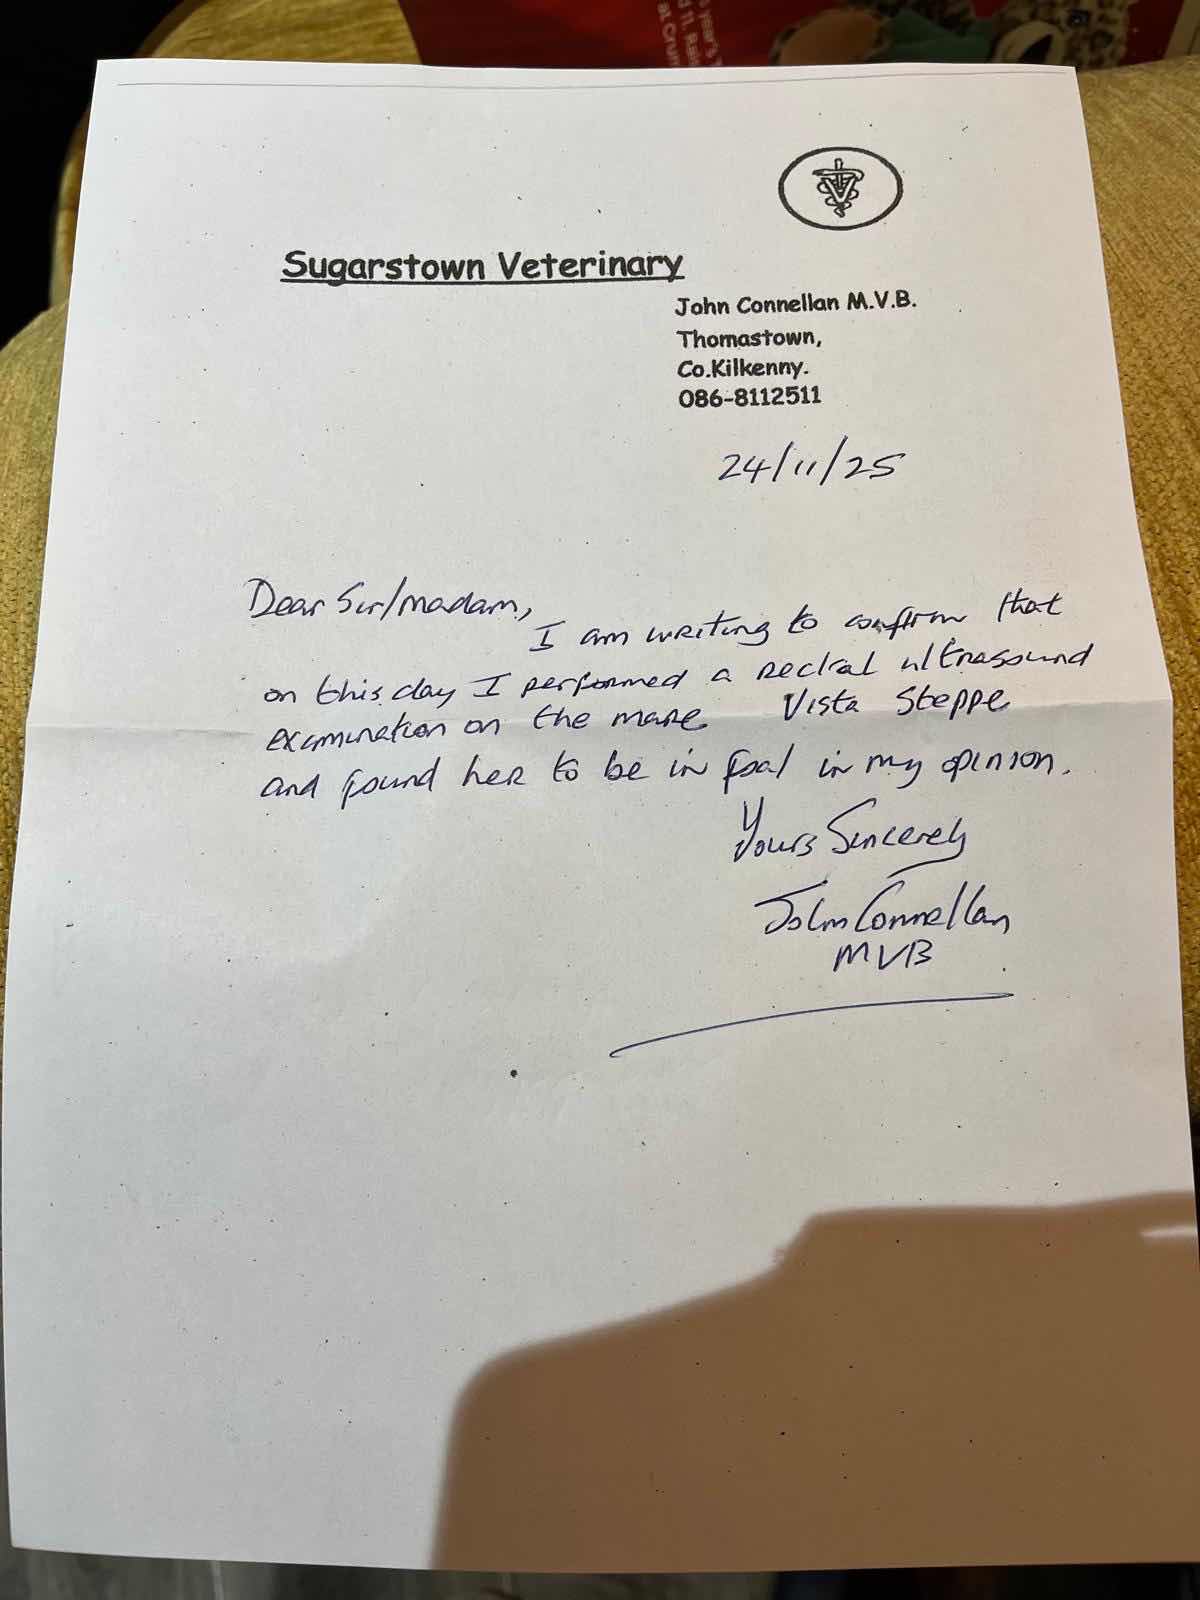 year's T
d 11. Rais
at Crum
Sugarstown Veterinary
John Connellan M.V.B.
Thomastown,
Co.Kilkenny.
086-8112511
24/11/25
Dear Sir/Madam,
I am writing to confirm that
on this day I performed a rectal ultrasound
examination on the mare Vista Steppe
and found her to be in foal in my opinion.
Yours Sincerely
John Connellan
MVB